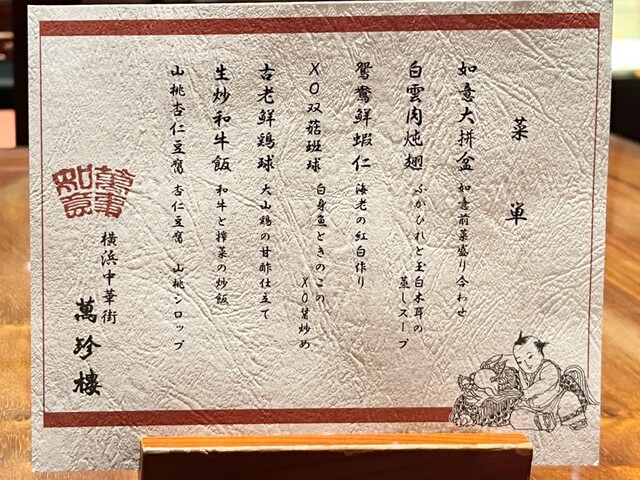 菜単
如意大拼盆 如意前菜盛り合わせ
白雲肉炖翅 ふかひれと玉白木耳の
蒸しスープ
鴛鴦鮮蝦仁 海老の紅白作り
XO双菇班球 白身魚ときのこの
XO醤炒め
古老鮮鶏球 大山鶏の甘酢仕立て
生炒和牛飯 和牛と搾菜の炒飯
山桃杏仁豆腐 杏仁豆腐 山桃シロップ
萬事如意
横浜中華街
萬珍樓